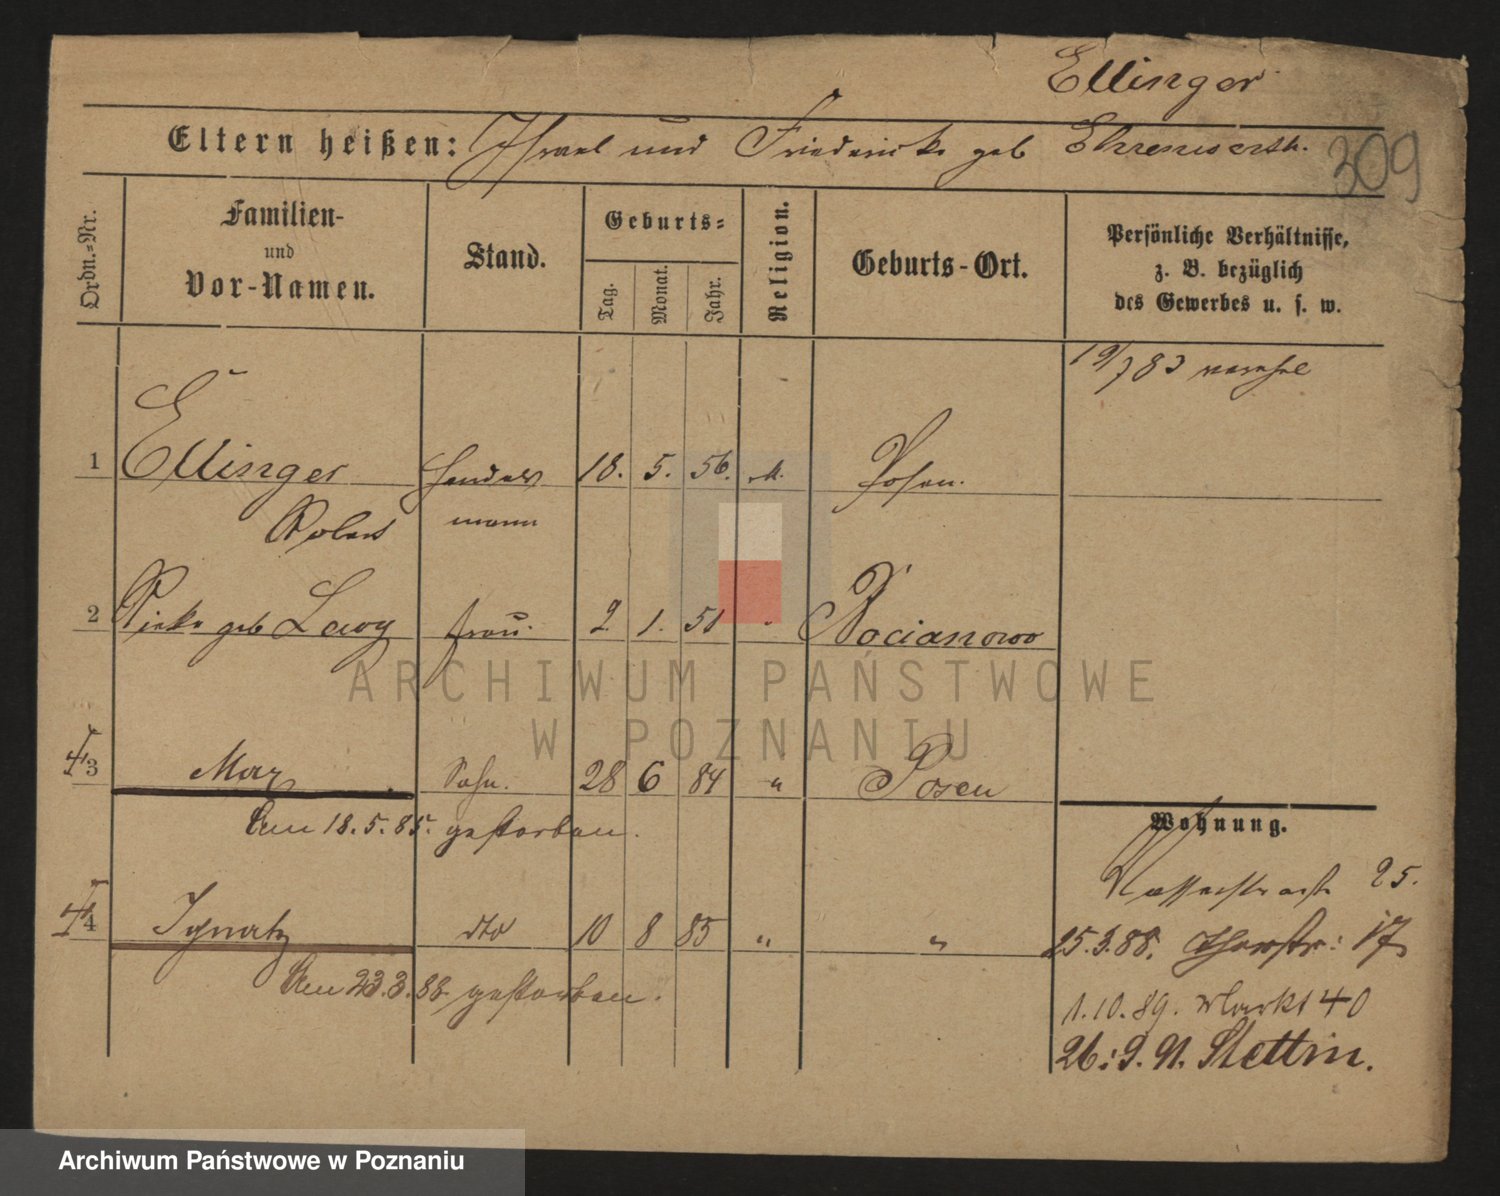 Ellinger
309
Eltern heißen: Israel und Friedericke geb Ehrenwerth.
Ordn.=Nr.
Familien-
und
Vor-Namen.
Stand.
Geburts=
Tag.
Monat.
Jahr.
Religion.
Geburts-Ort.
Persönliche Verhältnisse,
z. B. bezüglich
des Gewerbes u. s. w.
19/7 83
1 Ellinger Handels 18. 5. 56. M. Posen.
Robert mann
2 Rieke geb Lewy frau. 2 1. 51 "
3 Max Sohn. 28 6 84 " Posen
Am 18.5.85. gestorben.
Wohnung.
Wasserstraße 25.
4 Ignatz dto 10 8 85 " "
25.3.88. Thorstr: 17
Am 23.3.88. gestorben.
1.10.89. Markt 40
26.9.91. Stettin.
ARCHIWUM PAŃSTWOWE
W POZNANIU
Archiwum Państwowe w Poznaniu